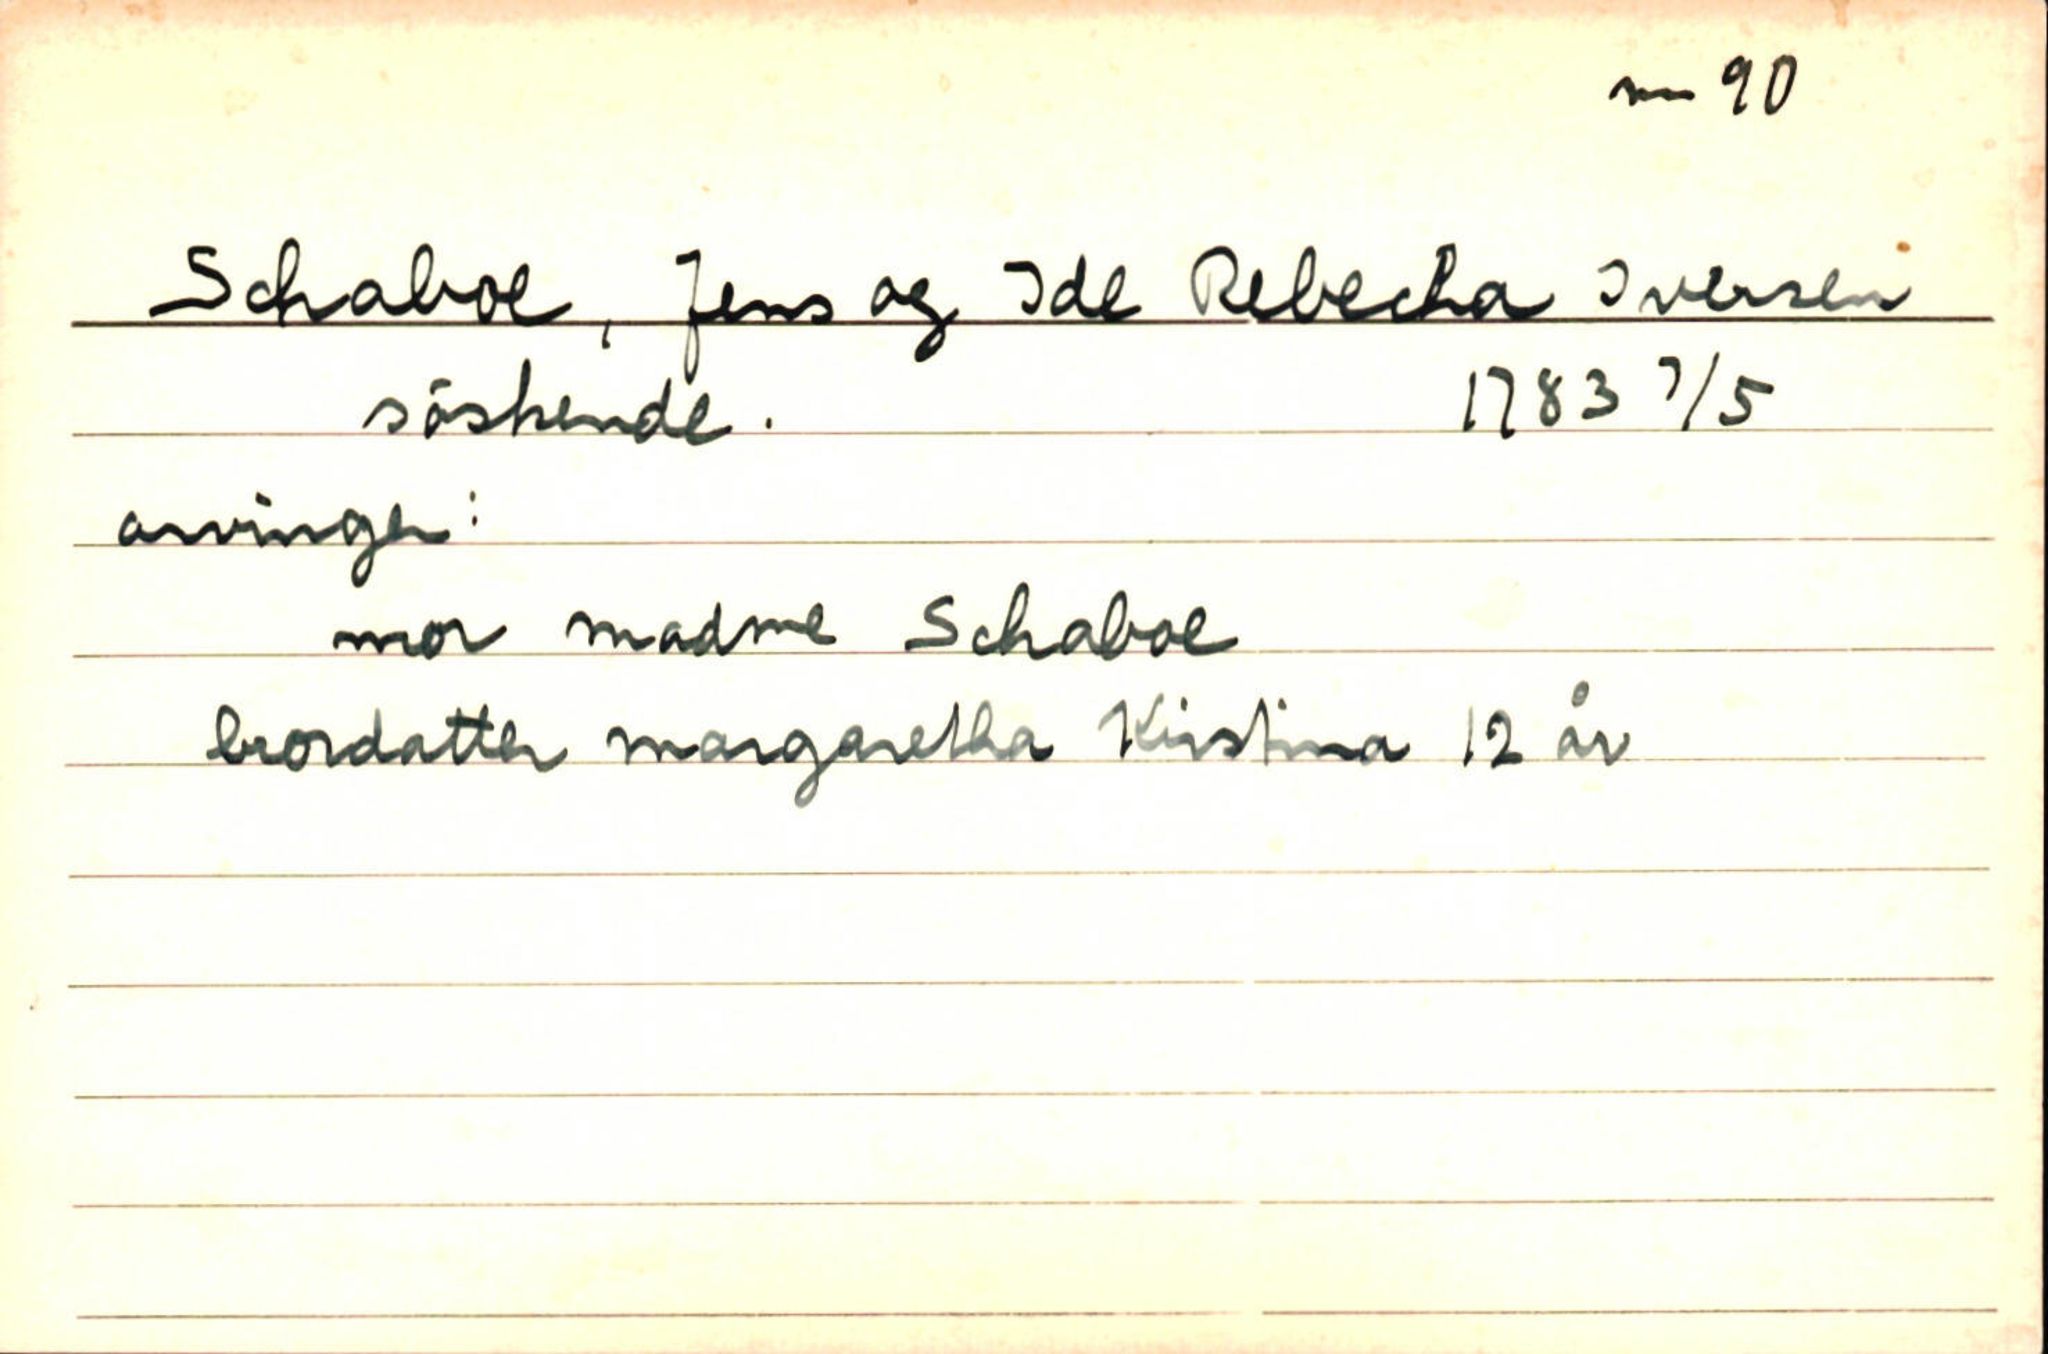 nr 90
Schaboe, Jens og Ide Rebecha Iversen
söskende. 1783 7/5
arvinger:
mor madme Schaboe
brordatter margaretha Kirstina 12 år